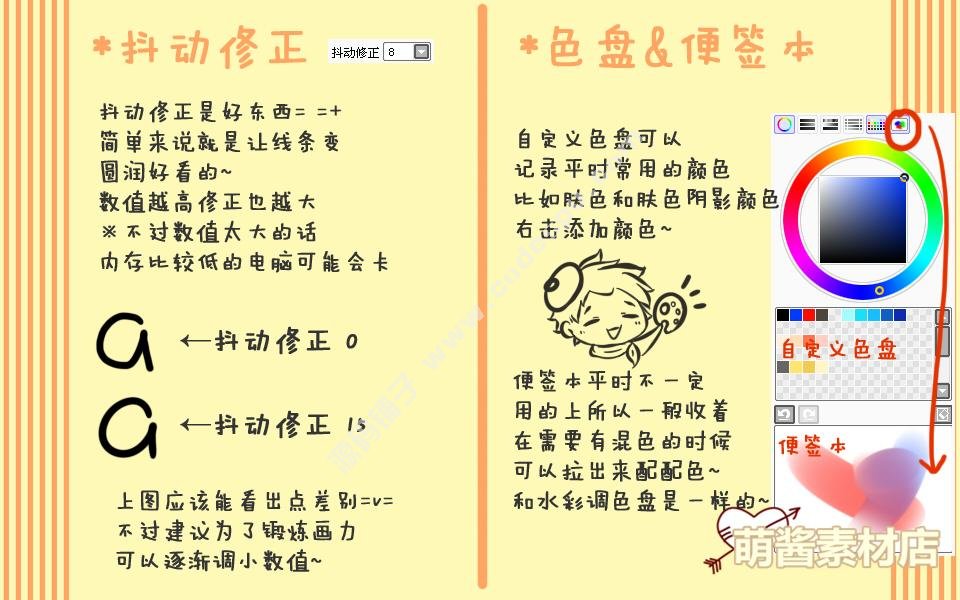 *抖动修正
抖动修正 8
抖动修正是好东西= =+
简单来说就是让线条变
圆润好看的~
数值越高修正也越大
※不过数值太大的话
内存比较低的电脑可能会卡
a ←抖动修正 0
a ←抖动修正 15
上图应该能看出点差别=v=
不过建议为了锻炼画力
可以逐渐调小数值~
*色盘&便签本
自定义色盘可以
记录平时常用的颜色
比如肤色和肤色阴影颜色
右击添加颜色~
便签本平时不一定
用的上所以一般收着
在需要有混色的时候
可以拉出来配配色~
和水彩调色盘是一样的~
自定义色盘
便签本
萌酱素材店